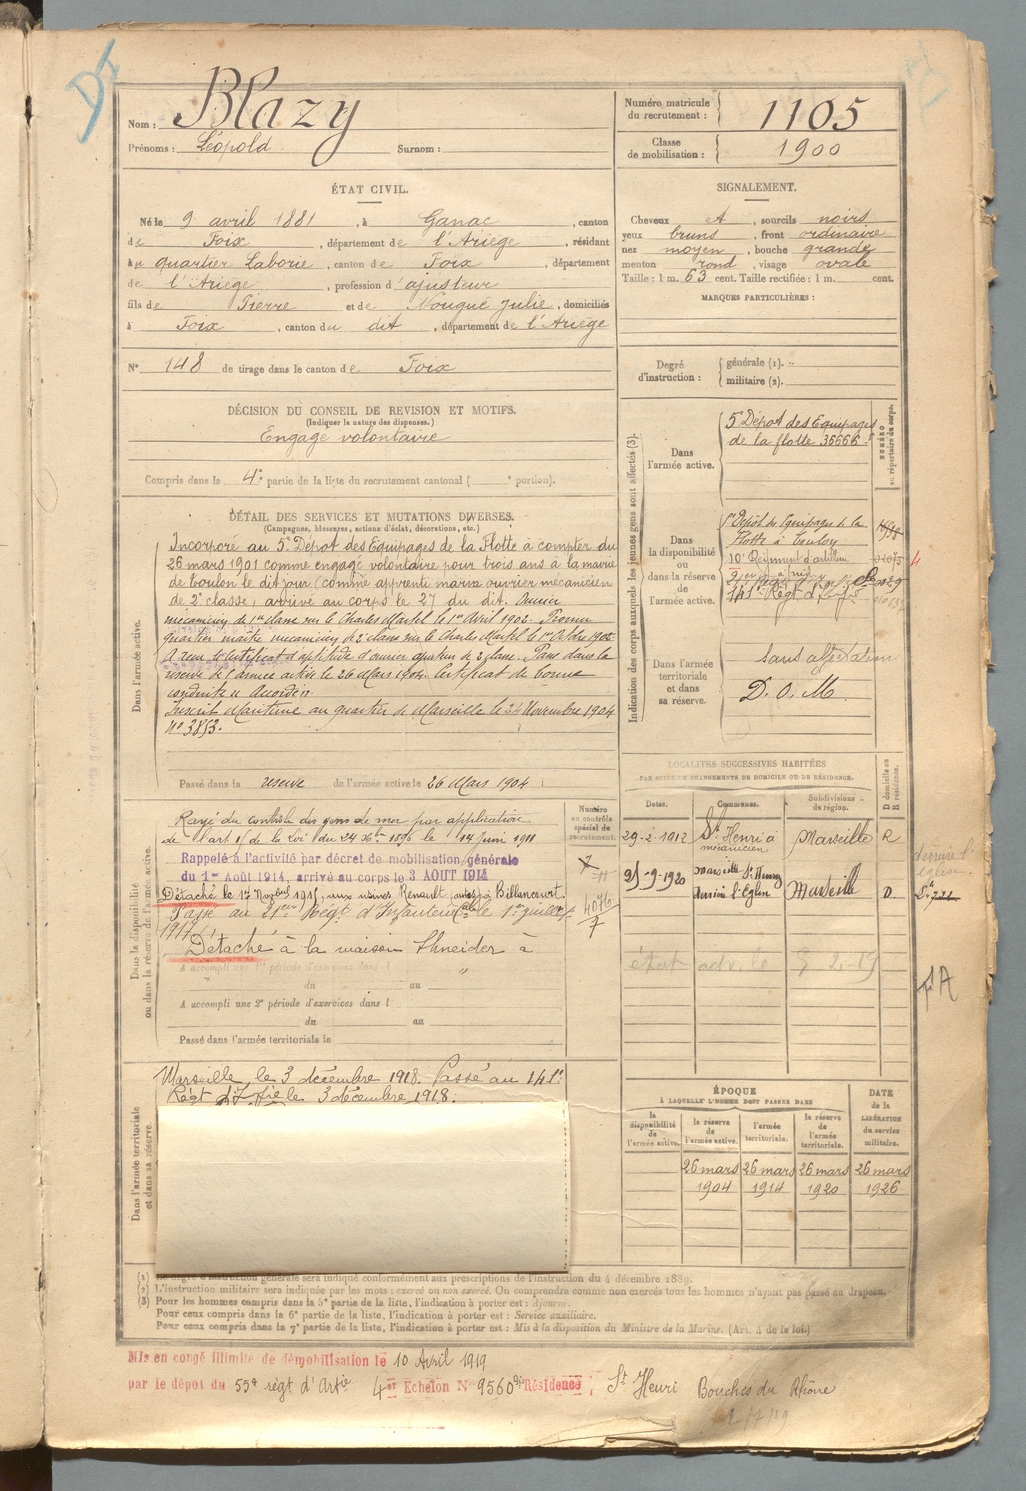 Nom : Blazy
Prénoms : Léopold Surnom :
Numéro matricule du recrutement : 1105
Classe de mobilisation : 1900
ÉTAT CIVIL.
Né le 9 avril 1881, à Ganac, canton
de Foix, département de l'Ariège, résidant
au quartier Laborie, canton de Foix, département
de l'Ariège, profession d'ajusteur
fils de Pierre et de Nougué Julie, domiciliés
à Foix, canton du dit, département de l'Ariège
N° 148 de tirage dans le canton de Foix
SIGNALEMENT.
Cheveux et, sourcils noirs
yeux bruns, front ordinaire
nez moyen, bouche grande
menton rond, visage ovale
Taille : 1 m. 63 cent. Taille rectifiée : 1 m. cent.
MARQUES PARTICULIÈRES :
Degré d'instruction : générale (1). "
militaire (2).
DÉCISION DU CONSEIL DE REVISION ET MOTIFS.
(Indiquer la nature des dispenses.)
Engagé volontaire
Compris dans la 4e partie de la liste du recrutement cantonal ( e portion).
DÉTAIL DES SERVICES ET MUTATIONS DIVERSES.
(Campagnes, blessures, actions d'éclat, décorations, etc.)
Dans l'armée active.
Incorporé au 5e Dépot des Equipages de la Flotte à compter du
26 mars 1901 comme engagé volontaire pour trois ans à la mairie
de Toulon le dit jour (comme apprenti marin ouvrier mécanicien
de 2e classe, arrivé au corps le 27 du dit. Ouvrier
mécanicien de 1re classe sur le Charles Martel le 1er Avril 1902. Promu
quartier maître mécanicien de 2e classe sur le Charles Martel le 1er Octobre 1902.
A reçu le certificat d'aptitude d'ouvrier ajusteur de 2e classe. Passé dans la
réserve de l'armée active le 26 Mars 1904. Certificat de bonne
conduite "Accordé".
Inscrit Maritime au quartier de Marseille le 24 Novembre 1904
N° 3853.
Passé dans la réserve de l'armée active le 26 Mars 1904
Indication des corps auxquels les jeunes gens sont affectés (3).
NUMÉRO au répertoire du corps.
Dans l'armée active.
5e Dépot des Equipages
de la flotte 36666.
Dans la disponibilité ou dans la réserve de l'armée active.
Dépôt des Equipages de la
Flotte à Toulon
10e Régiment d'artillerie
141e Régt d'Infie
Dans l'armée territoriale et dans sa réserve.
Sans affectation
D. O. M.
LOCALITÉS SUCCESSIVES HABITÉES
PAR SUITE DE CHANGEMENTS DE DOMICILE OU DE RÉSIDENCE.
Dates. Communes. Subdivisions de région. D domicile ou R résidence.
29-2-1912 St Henri à Marseille R
mécanicien
25-9-1920 Marseille St Henry Marseille D
derrière l'Eglise
derrière l'
église
Dans la disponibilité ou dans la réserve de l'armée active.
Numéro en contrôle spécial de recrutement.
4076
7
Rayé du contrôle des gens de mer par application
de l'art 1 de la Loi du 24 Xbre 1896 le 14 Juin 1911
Rappelé à l'activité par décret de mobilisation générale
du 1er Août 1914, arrivé au corps le 3 AOUT 1914
Détaché le 17 Novbre 1915, aux usines Renault à Billancourt.
Passé au 21e Régt d'Infanterie le 1er juillet
1917.
Détaché à la maison Shneider à
A accompli une 1re période d'exercices dans l "
du au
A accompli une 2e période d'exercices dans l
du au
Passé dans l'armée territoriale le
Dans l'armée territoriale et dans sa réserve.
Marseille le 3 décembre 1918. Passé au 141e
Régt d'Infie le 3 décembre 1918.
ÉPOQUE
À LAQUELLE L'HOMME DOIT PASSER DANS
la disponibilité de l'armée active. la réserve de l'armée active. l'armée territoriale. la réserve de l'armée territoriale.
DATE de la LIBÉRATION du service militaire.
26 mars 26 mars 26 mars 26 mars
1904 1914 1920 1926
(1) Le degré d'instruction générale sera indiqué conformément aux prescriptions de l'instruction du 4 décembre 1889.
(2) L'instruction militaire sera indiquée par les mots : exercé ou non exercé. On comprendra comme non exercés tous les hommes n'ayant pas passé au drapeau.
(3) Pour les hommes compris dans la 5e partie de la liste, l'indication à porter est : Ajourné.
Pour ceux compris dans la 6e partie de la liste, l'indication à porter est : Service auxiliaire.
Pour ceux compris dans la 7e partie de la liste, l'indication à porter est : Mis à la disposition du Ministre de la Marine. (Art. 4 de la loi.)
Mis en congé illimité de démobilisation le 10 Avril 1919
par le dépot du 55e règt d'Artie 4e Echelon N° 9560 Résidence : St Henri Bouches du Rhône